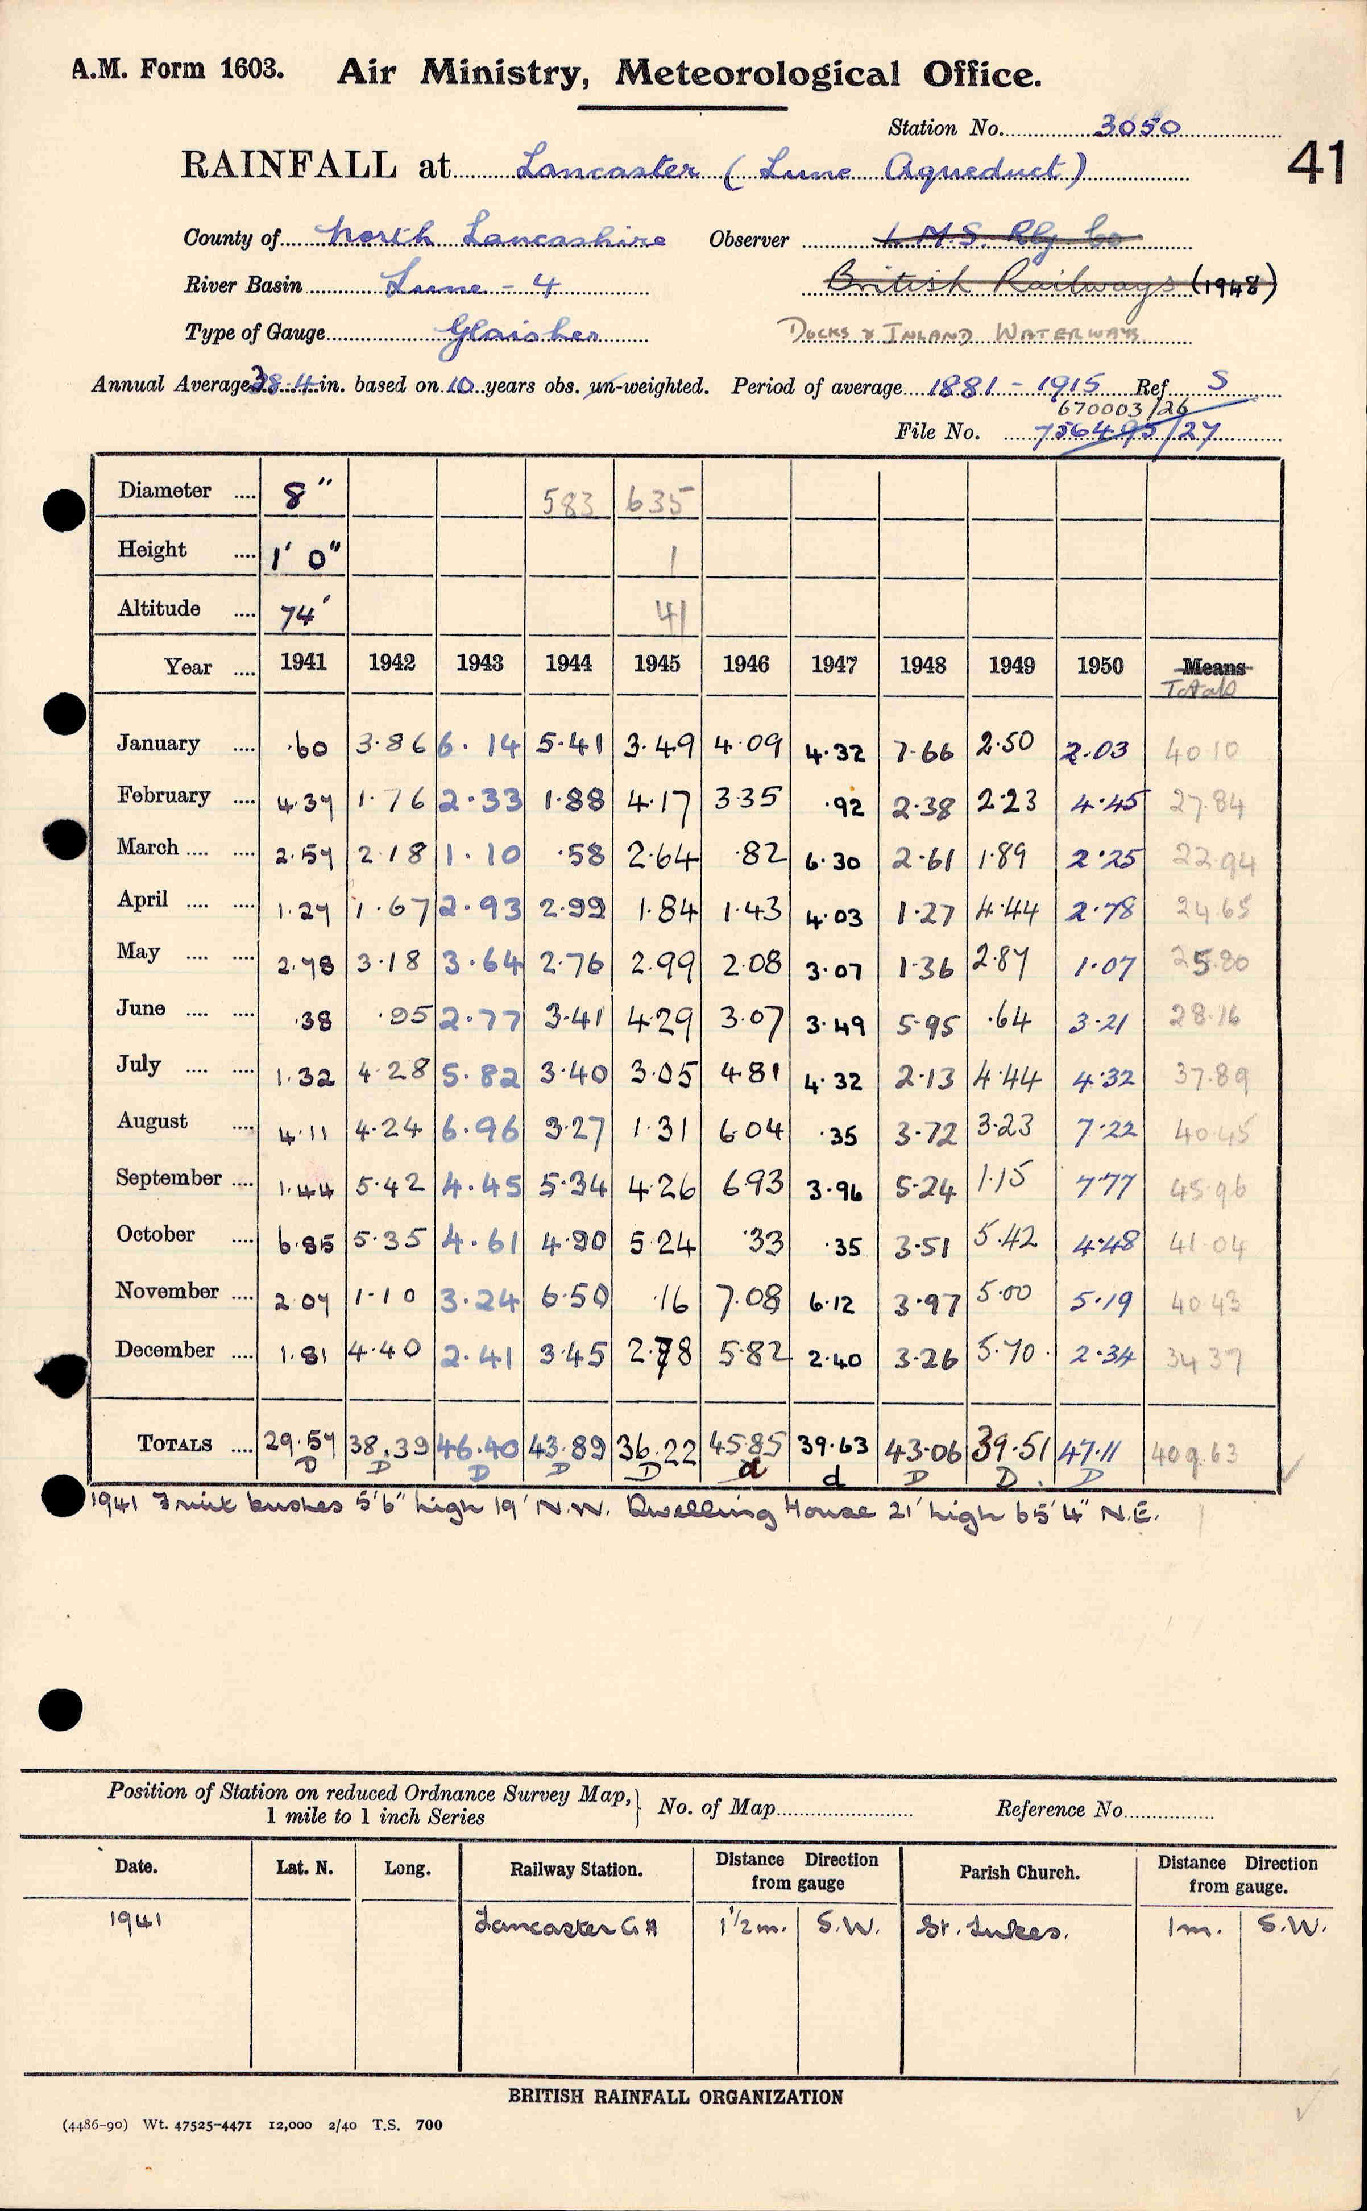 A.M. Form 1603. Air Ministry, Meteorological Office.
Station No. 3050
41
RAINFALL at Lancaster (Lune Aqueduct)
County of North Lancashire Observer L.M.S. Rly Co
River Basin Lune - 4 British Railways (1948)
Type of Gauge Glaisher DOCKS & INLAND WATERWAYS
Annual Average 38.4 in. based on 10 years obs. un-weighted. Period of average 1881 - 1915 Ref S
670003/26
File No. 756495/27
Diameter .... 8" 583 635
Height .... 1' 0" 1
Altitude .... 74' 41
Year .... 1941 1942 1943 1944 1945 1946 1947 1948 1949 1950 Means
Totals
January .... .60 3.86 6.14 5.41 3.49 4.09 4.32 7.66 2.50 2.03 40.10
February .... 4.37 1.76 2.33 1.88 4.17 3.35 .92 2.38 2.23 4.45 27.84
March .... .... 2.57 2.18 1.10 .58 2.64 .82 6.30 2.61 1.89 2.25 22.94
April .... .... 1.27 1.67 2.93 2.99 1.84 1.43 4.03 1.27 4.44 2.78 24.65
May .... .... 2.78 3.18 3.64 2.76 2.99 2.08 3.07 1.36 2.87 1.07 25.80
June .... .... .38 .95 2.77 3.41 4.29 3.07 3.49 5.95 .64 3.21 28.16
July .... .... 1.32 4.28 5.82 3.40 3.05 4.81 4.32 2.13 4.44 4.32 37.89
August .... 4.11 4.24 6.96 3.27 1.31 6.04 .35 3.72 3.23 7.22 40.45
September .... 1.44 5.42 4.45 5.34 4.26 6.93 3.96 5.24 1.15 7.77 45.96
October .... 6.85 5.35 4.61 4.90 5.24 .33 .35 3.51 5.42 4.48 41.04
November .... 2.07 1.10 3.24 6.50 .16 7.08 6.12 3.97 5.00 5.19 40.43
December .... 1.81 4.40 2.41 3.45 2.78 5.82 2.40 3.26 5.70 2.34 34.37
TOTALS .... 29.57 38.39 46.40 43.89 36.22 45.85 39.63 43.06 39.51 47.11 409.63
D D D D D d d D D D
1941 Fruit bushes 5'6" high 19' N.W. Dwelling House 21' high 65'4" N.E.
Position of Station on reduced Ordnance Survey Map,
1 mile to 1 inch Series
No. of Map Reference No.
Date. Lat. N. Long. Railway Station. Distance Direction from gauge Parish Church. Distance Direction from gauge.
1941 Lancaster G H 1½m. S.W. St. Lukes. 1m. S.W.
BRITISH RAINFALL ORGANIZATION
(4486-90) Wt. 47525-4471 12,000 2/40 T.S. 700